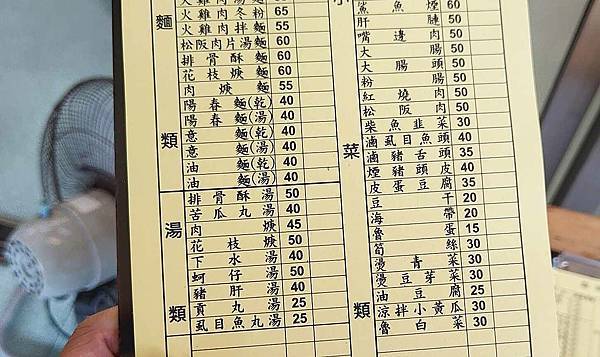 麵類
火雞肉冬粉 65
火雞肉拌麵 55
松阪肉片湯麵 60
排骨酥麵 60
花枝焿麵 60
肉焿麵 55
陽春麵(乾) 40
陽春麵(湯) 40
意麵(乾) 40
意麵(湯) 40
油麵(乾) 40
油麵(湯) 40
湯類
排骨酥湯 50
苦瓜丸湯 40
肉焿 45
花枝焿 50
下水湯 40
蚵仔湯 50
豬肝湯 40
貢丸湯 25
虱目魚丸湯 25
小菜類
鯊魚煙 60
肝腫 50
嘴邊肉 50
大腸 50
大腸頭 50
粉腸 50
紅燒肉 50
松阪肉 50
柴魚韭菜 30
滷虱目魚頭 40
滷豬舌頭 35
煙豬頭皮 40
皮蛋豆腐 35
豆干 20
海帶 20
魯蛋 15
筍絲 30
燙青菜 30
燙豆芽菜 30
油豆腐 25
涼拌小黃瓜 30
魯白菜 30